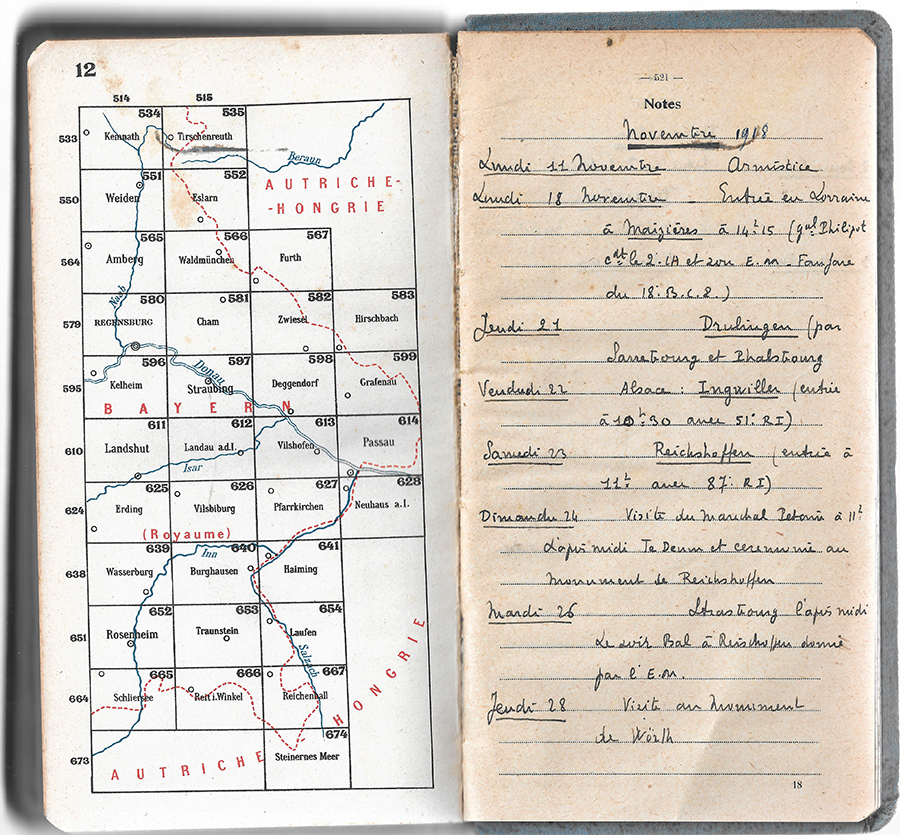 12
514 515
534 535
533 Kemnath Tirschenreuth
Beraun
551 552
550 Weiden Eslarn
AUTRICHE-
-HONGRIE
565 566 567
564 Amberg Waldmünchen Furth
Naab
580 581 582 583
579 REGENSBURG Cham Zwiesel Hirschbach
596 597 598 599
595 Kelheim Donau Straubing Deggendorf Grafenau
BAYERN
611 612 613 614
610 Landshut Landau a.d.I. Vilshofen Passau
Isar
625 626 627 628
624 Erding Vilsbiburg Pfarrkirchen Neuhaus a.I.
(Royaume)
639 Inn 640 641
638 Wasserburg Burghausen Haiming
652 653 654
651 Rosenheim Traunstein Laufen
Salzach
665 666 667
664 Schliersee Reit i.Winkel Reichenhall
674
673 Steinernes Meer
AUTRICHE HONGRIE
— 521 —
Notes
Novembre 1918
Lundi 11 Novembre Armistice
Lundi 18 Novembre - Entrée en Lorraine
à Maizières à 14h15 (gal Philipot
cdt le 2e CA et son E.M - Fanfare
du 18e B.C.P.)
Jeudi 21 Drulingen (par
Sarrebourg et Phalsbourg
Vendredi 22 Alsace : Ingwiller (entrée
à 10h30 avec 51e RI)
Samedi 23 Reichshoffen (entrée à
11h avec 87e RI)
Dimanche 24 Visite du Marechal Petain à 11h
L'après midi Te Deum et ceremonie au
monument de Reichshoffen
Mardi 26 Strasbourg l'après midi
Le soir Bal à Reischoffen donné
par l'E.M.
Jeudi 28 Visite au Monument
de Wörth
18